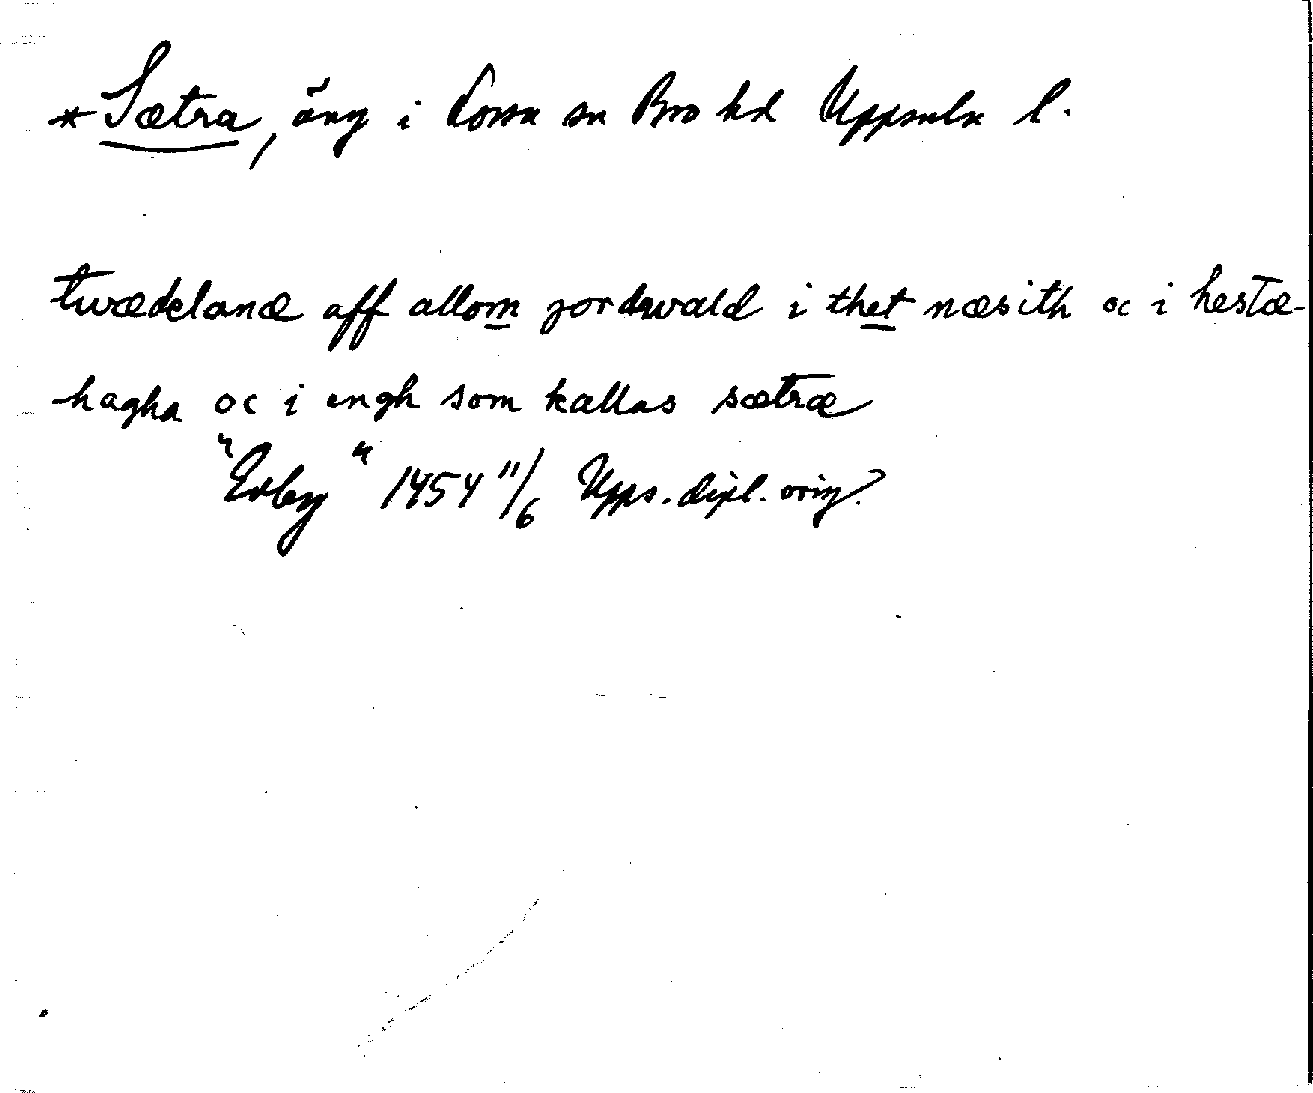 *Sætra, äng i Lossa sn Bro hd Uppsala l.
twædelanæ aff allom jordwald i thet næsith oc i hestæ-
hagha oc i engh som kallas sætræ
"Edby" 1454 11/6 Upps. dipl. orig.